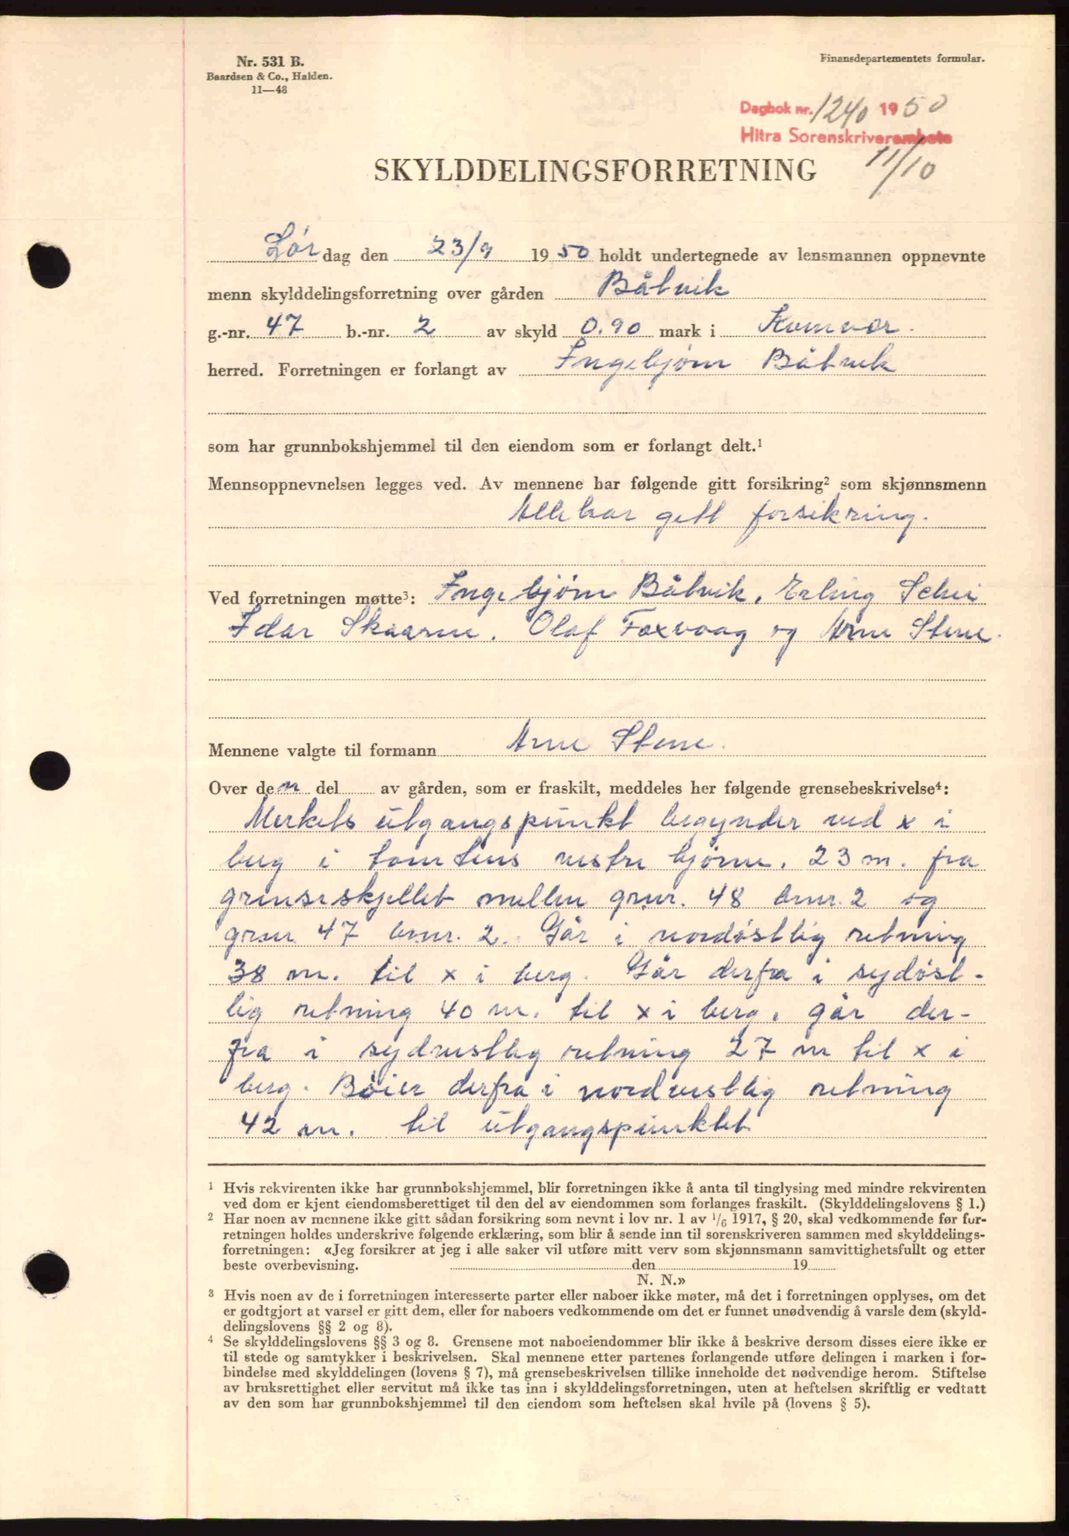 Nr. 531 B.
Baardsen & Co., Halden.
11—48
Finansdepartementets formular.
Dagbok nr. 1240 1950
Hitra Sorenskriverembete
11/10
SKYLDDELINGSFORRETNING
Lørdag den 23/9 1950 holdt undertegnede av lensmannen oppnevnte
menn skylddelingsforretning over gården Båtvik
g.-nr. 47 b.-nr. 2 av skyld 0.90 mark i Kvenvær.
herred. Forretningen er forlangt av Ingebjørn Båtvik
som har grunnbokshjemmel til den eiendom som er forlangt delt.¹
Mennsoppnevnelsen legges ved. Av mennene har følgende gitt forsikring² som skjønnsmenn
Alle har gitt forsikring.
Ved forretningen møtte³: Ingebjørn Båtvik, Erling Schei
Idar Skaarne, Olaf Foxvaag og Arne Stene.
Mennene valgte til formann Arne Stene.
Over den del av gården, som er fraskilt, meddeles her følgende grensebeskrivelse⁴:
Merkets utgangspunkt begynder ved x i
berg i tomtens vestre hjørne, 23 m. fra
grenseskjellet mellem grnr. 48 brnr. 2 og
grnr 47 brnr. 2. Går i nordøstlig retning
38 m. til x i berg. Går derfra i sydøst-
lig retning 40 m. til x i berg, går der-
fra i sydvestlig retning 27 m til x i
berg. Bøier derfra i nordvestlig retning
42 m. til utgangspunktet
¹ Hvis rekvirenten ikke har grunnbokshjemmel, blir forretningen ikke å anta til tinglysing med mindre rekvirenten
ved dom er kjent eiendomsberettiget til den del av eiendommen som forlanges fraskilt. (Skylddelingslovens § 1.)
² Har noen av mennene ikke gitt sådan forsikring som nevnt i lov nr. 1 av 1/6 1917, § 20, skal vedkommende før for-
retningen holdes underskrive følgende erklæring, som blir å sende inn til sorenskriveren sammen med skylddelings-
forretningen: «Jeg forsikrer at jeg i alle saker vil utføre mitt verv som skjønnsmann samvittighetsfullt og etter
beste overbevisning. den 19
N. N.»
³ Hvis noen av de i forretningen interesserte parter eller naboer ikke møter, må det i forretningen opplyses, om det
er godtgjort at varsel er gitt dem, eller for naboers vedkommende om det er funnet unødvendig å varsle dem (skyld-
delingslovens §§ 2 og 8).
⁴ Se skylddelingslovens §§ 3 og 8. Grensene mot naboeiendommer blir ikke å beskrive dersom disses eiere ikke er
til stede og samtykker i beskrivelsen. Skal mennene etter partenes forlangende utføre delingen i marken i for-
bindelse med skylddelingen (lovens § 7), må grensebeskrivelsen tillike inneholde det nødvendige herom. Stiftelse
av bruksrettighet eller servitut må ikke tas inn i skylddelingsforretningen, uten at heftelsen skriftlig er vedtatt
av den som har grunnbokshjemmel til den eiendom som heftelsen skal hvile på (lovens § 5).